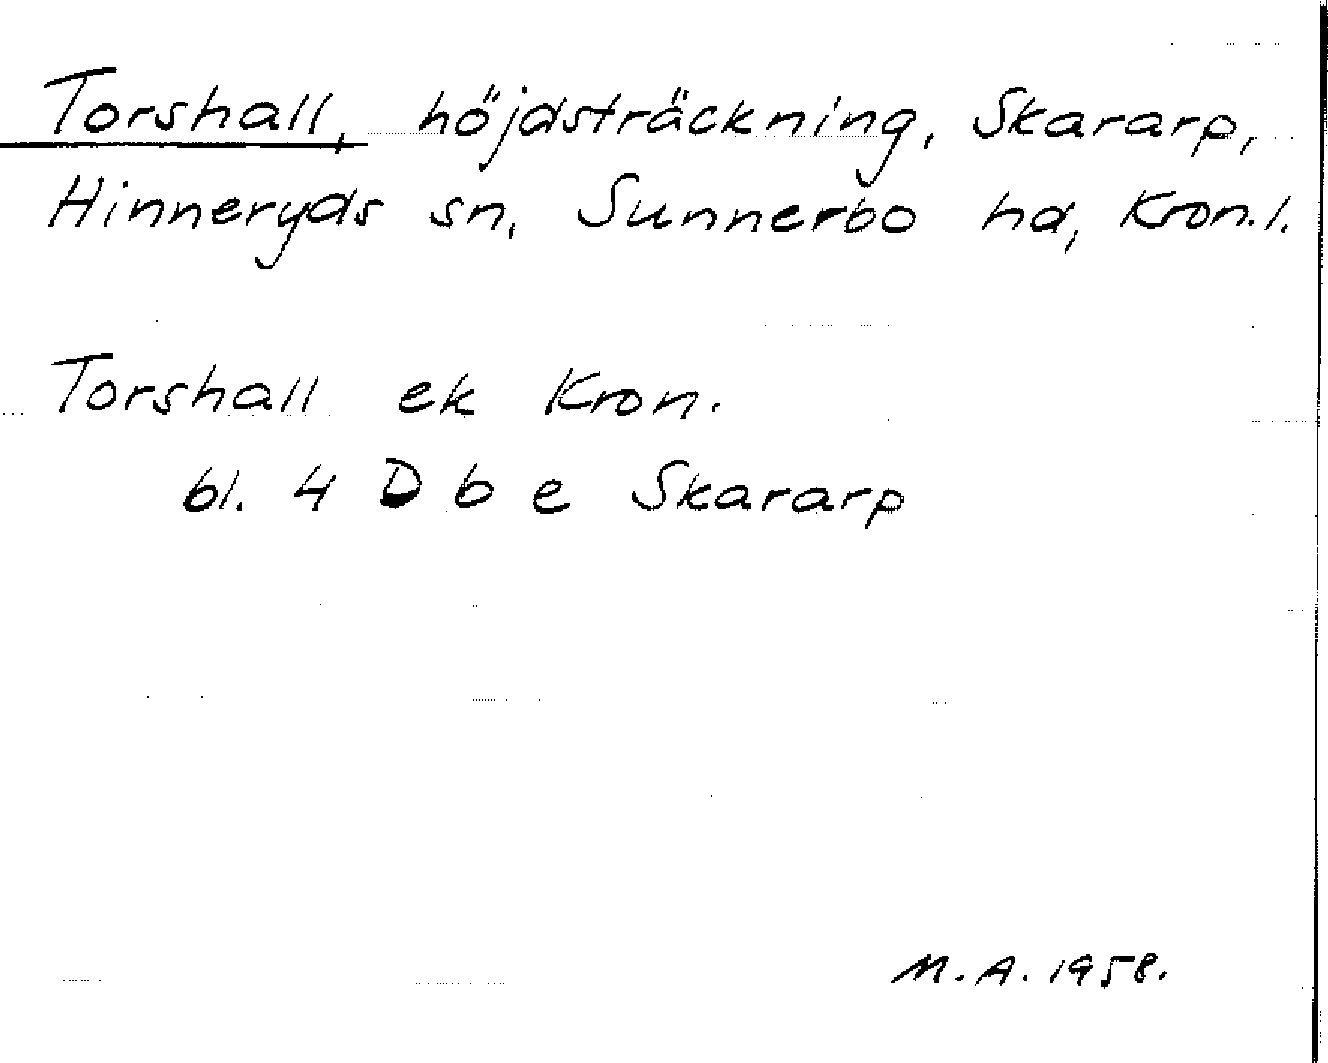 Torshall, höjdsträckning, Skararp,
Hinneryds sn, Sunnerbo hd, Kron.l.
Torshall ek Kron.
bl. 4 D b e Skararp
M.A. 1958.